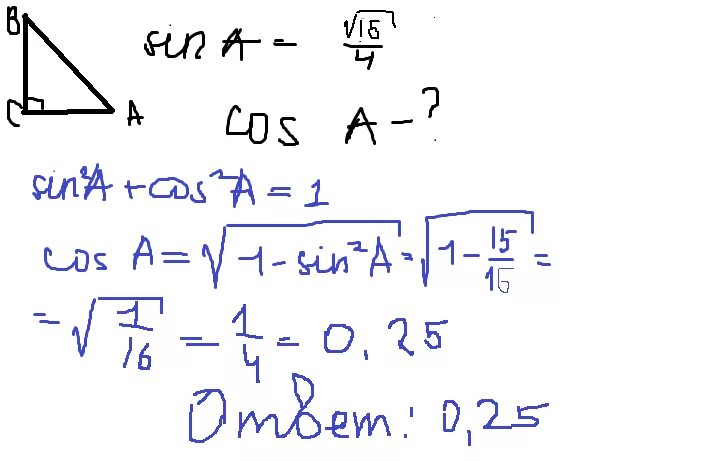 B
sin A = √15/4
C A
cos A - ?
sin²A + cos²A = 1
cos A = √(1 - sin²A) = √(1 - 15/16) =
= √(1/16) = 1/4 = 0,25
Ответ: 0,25